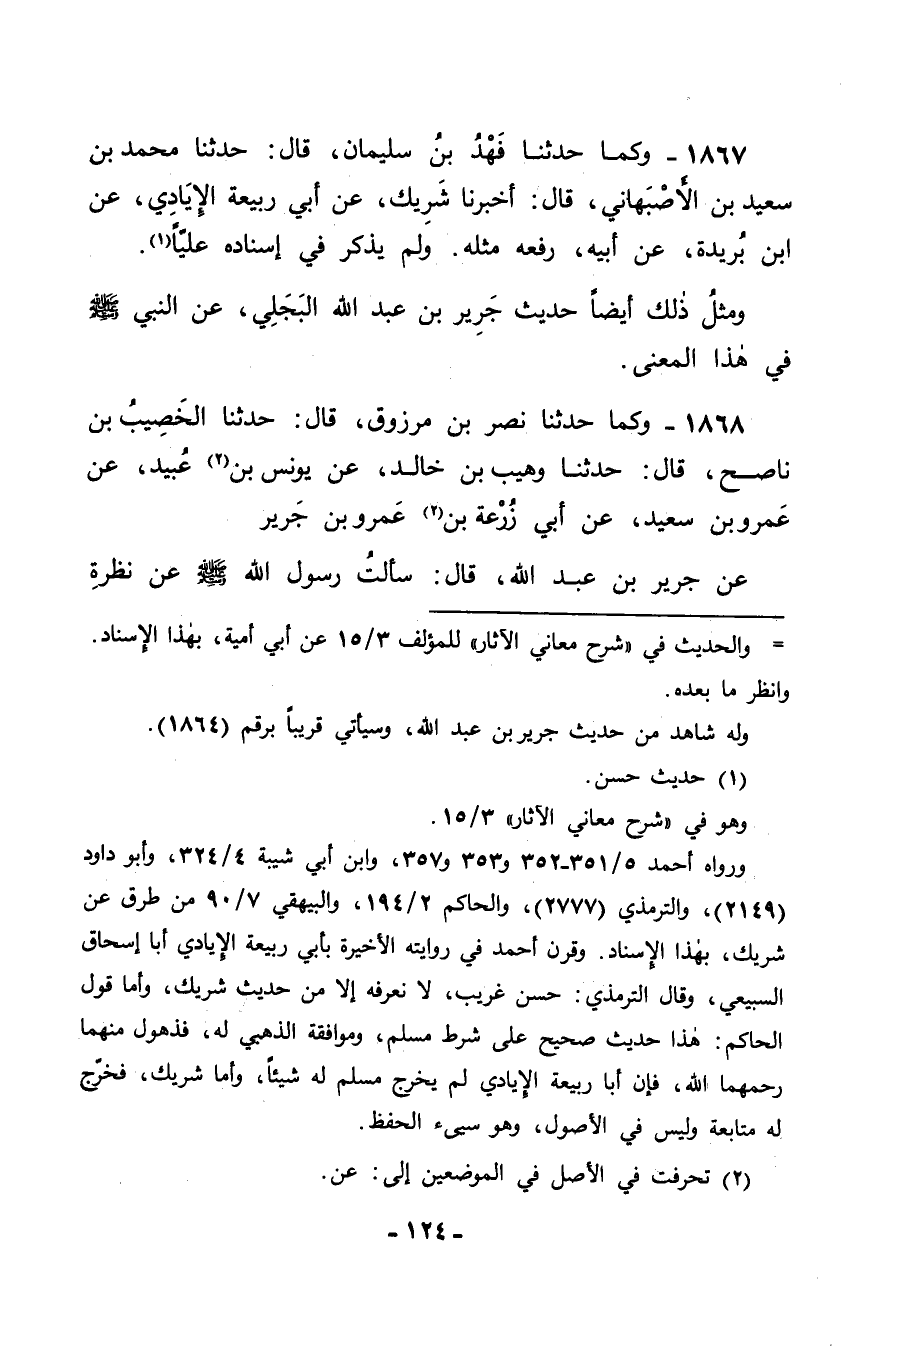 ١٨٦٧ - وكما حدثنا فَهْدُ بنُ سليمان، قال: حدثنا محمد بن
سعيد بن الأَصْبَهاني، قال: أخبرنا شَرِيك، عن أبي ربيعة الإِيَادِي، عن
ابن بُريدة، عن أبيه، رفعه مثله. ولم يذكر في إسناده عليّاً(١).
ومثلُ ذٰلك أيضاً حديث جَرِير بن عبد الله البَجَلِي، عن النبي ﷺ
في هٰذا المعنى.
١٨٦٨ - وكما حدثنا نصر بن مرزوق، قال: حدثنا الخَصِيبُ بن
ناصح، قال: حدثنا وهيب بن خالد، عن يونس بن(٢) عُبيد، عن
عَمرو بن سعيد، عن أبي زُرْعة بن(٢) عَمرو بن جَرير
عن جرير بن عبد الله، قال: سألتُ رسول الله ﷺ عن نظرةِ
= والحديث في «شرح معاني الآثار» للمؤلف ١٥/٣ عن أبي أمية، بهٰذا الإِسناد.
وانظر ما بعده.
وله شاهد من حديث جرير بن عبد الله، وسيأتي قريباً برقم (١٨٦٤).
(١) حديث حسن.
وهو في «شرح معاني الآثار» ١٥/٣.
ورواه أحمد ٣٥١/٥-٣٥٢ و٣٥٣ و٣٥٧، وابن أبي شيبة ٣٢٤/٤، وأبو داود
(٢١٤٩)، والترمذي (٢٧٧٧)، والحاكم ١٩٤/٢، والبيهقي ٩٠/٧ من طرق عن
شريك، بهٰذا الإِسناد. وقرن أحمد في روايته الأخيرة بأبي ربيعة الإِيادي أبا إسحاق
السبيعي، وقال الترمذي: حسن غريب، لا نعرفه إلا من حديث شريك، وأما قول
الحاكم: هٰذا حديث صحيح على شرط مسلم، وموافقة الذهبي له، فذهول منهما
رحمهما الله، فإن أبا ربيعة الإِيادي لم يخرج مسلم له شيئاً، وأما شريك، فخرَّج
له متابعة وليس في الأصول، وهو سيىء الحفظ.
(٢) تحرفت في الأصل في الموضعين إلى: عن.
- ١٢٤ -